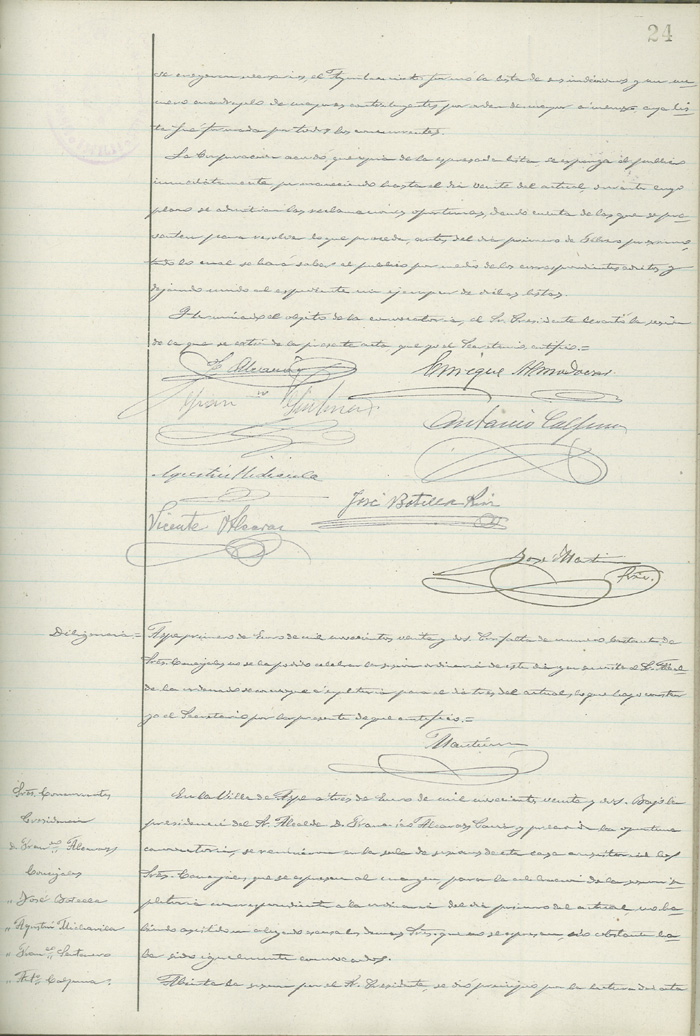 24
de creyeran necesarios, el Ayuntamiento formó la lista de sus individuos y un nu-
mero cuadruplo de mayores contribuyentes por orden de mayor a menor, cuya lis-
ta fué firmada por todos los concurrentes.
La Corporación acordó que copia de la expresada lista se exponga al publico
inmediatamente permaneciendo hasta el dia veinte del actual, durante cuyo
plazo se admitirán las reclamaciones oportunas, dando cuenta de las que se pre-
senten para resolver lo que proceda, antes del dia primero de Febrero proximo,
todo lo cual se hará saber al publico por medio de los correspondientes edictos y
dejando unido al expediente un ejemplar de dichas listas.
Y terminado el objeto de la convocatoria, el Sr. Presidente levantó la sesión
de la que se extiende la presente acta, que yo el Secretario certifico.=
F. Alcaraz
Enrique Almodovar
Antonio Calpena
Agustin Mira
Vicente Alcaraz
José Botella
José Martinez
Srio.
Diligencia=
Aspe primero de Enero de mil novecientos veinte y dos. Por falta de numero bastante de
Sres. Concejales no se ha podido celebrar la sesion ordinaria de este dia y en su vista el Sr. Alcal-
de ha ordenado se convoque a supletoria para el dia tres del actual, lo que hago constar
yo el Secretario por la presente de que certifico.=
Martinez
Sres. Concurrentes
Presidencia
D. Francº Alcaraz
Concejales
" José Botella
" Agustin
" Francº
" Antº Calpena.
En la Villa de Aspe a tres de Enero de mil novecientos veinte y dos. Bajo la
presidencia del Sr. Alcalde D. Francisco Alcaraz y precedida la oportuna
convocatoria, se reunieron en la sala de sesiones de esta casa consistorial los
Sres. Concejales, que se expresan al margen para la celebracion de la sesion su-
pletoria correspondiente a la ordinaria del dia primero del actual, no ha-
biendo asistido ni alegado excusa los demas Sres. que no se expresan, no obstante ha-
ber sido igualmente convocados.
Abierta la sesion por el Sr. Presidente, se dió principio por la lectura del acta